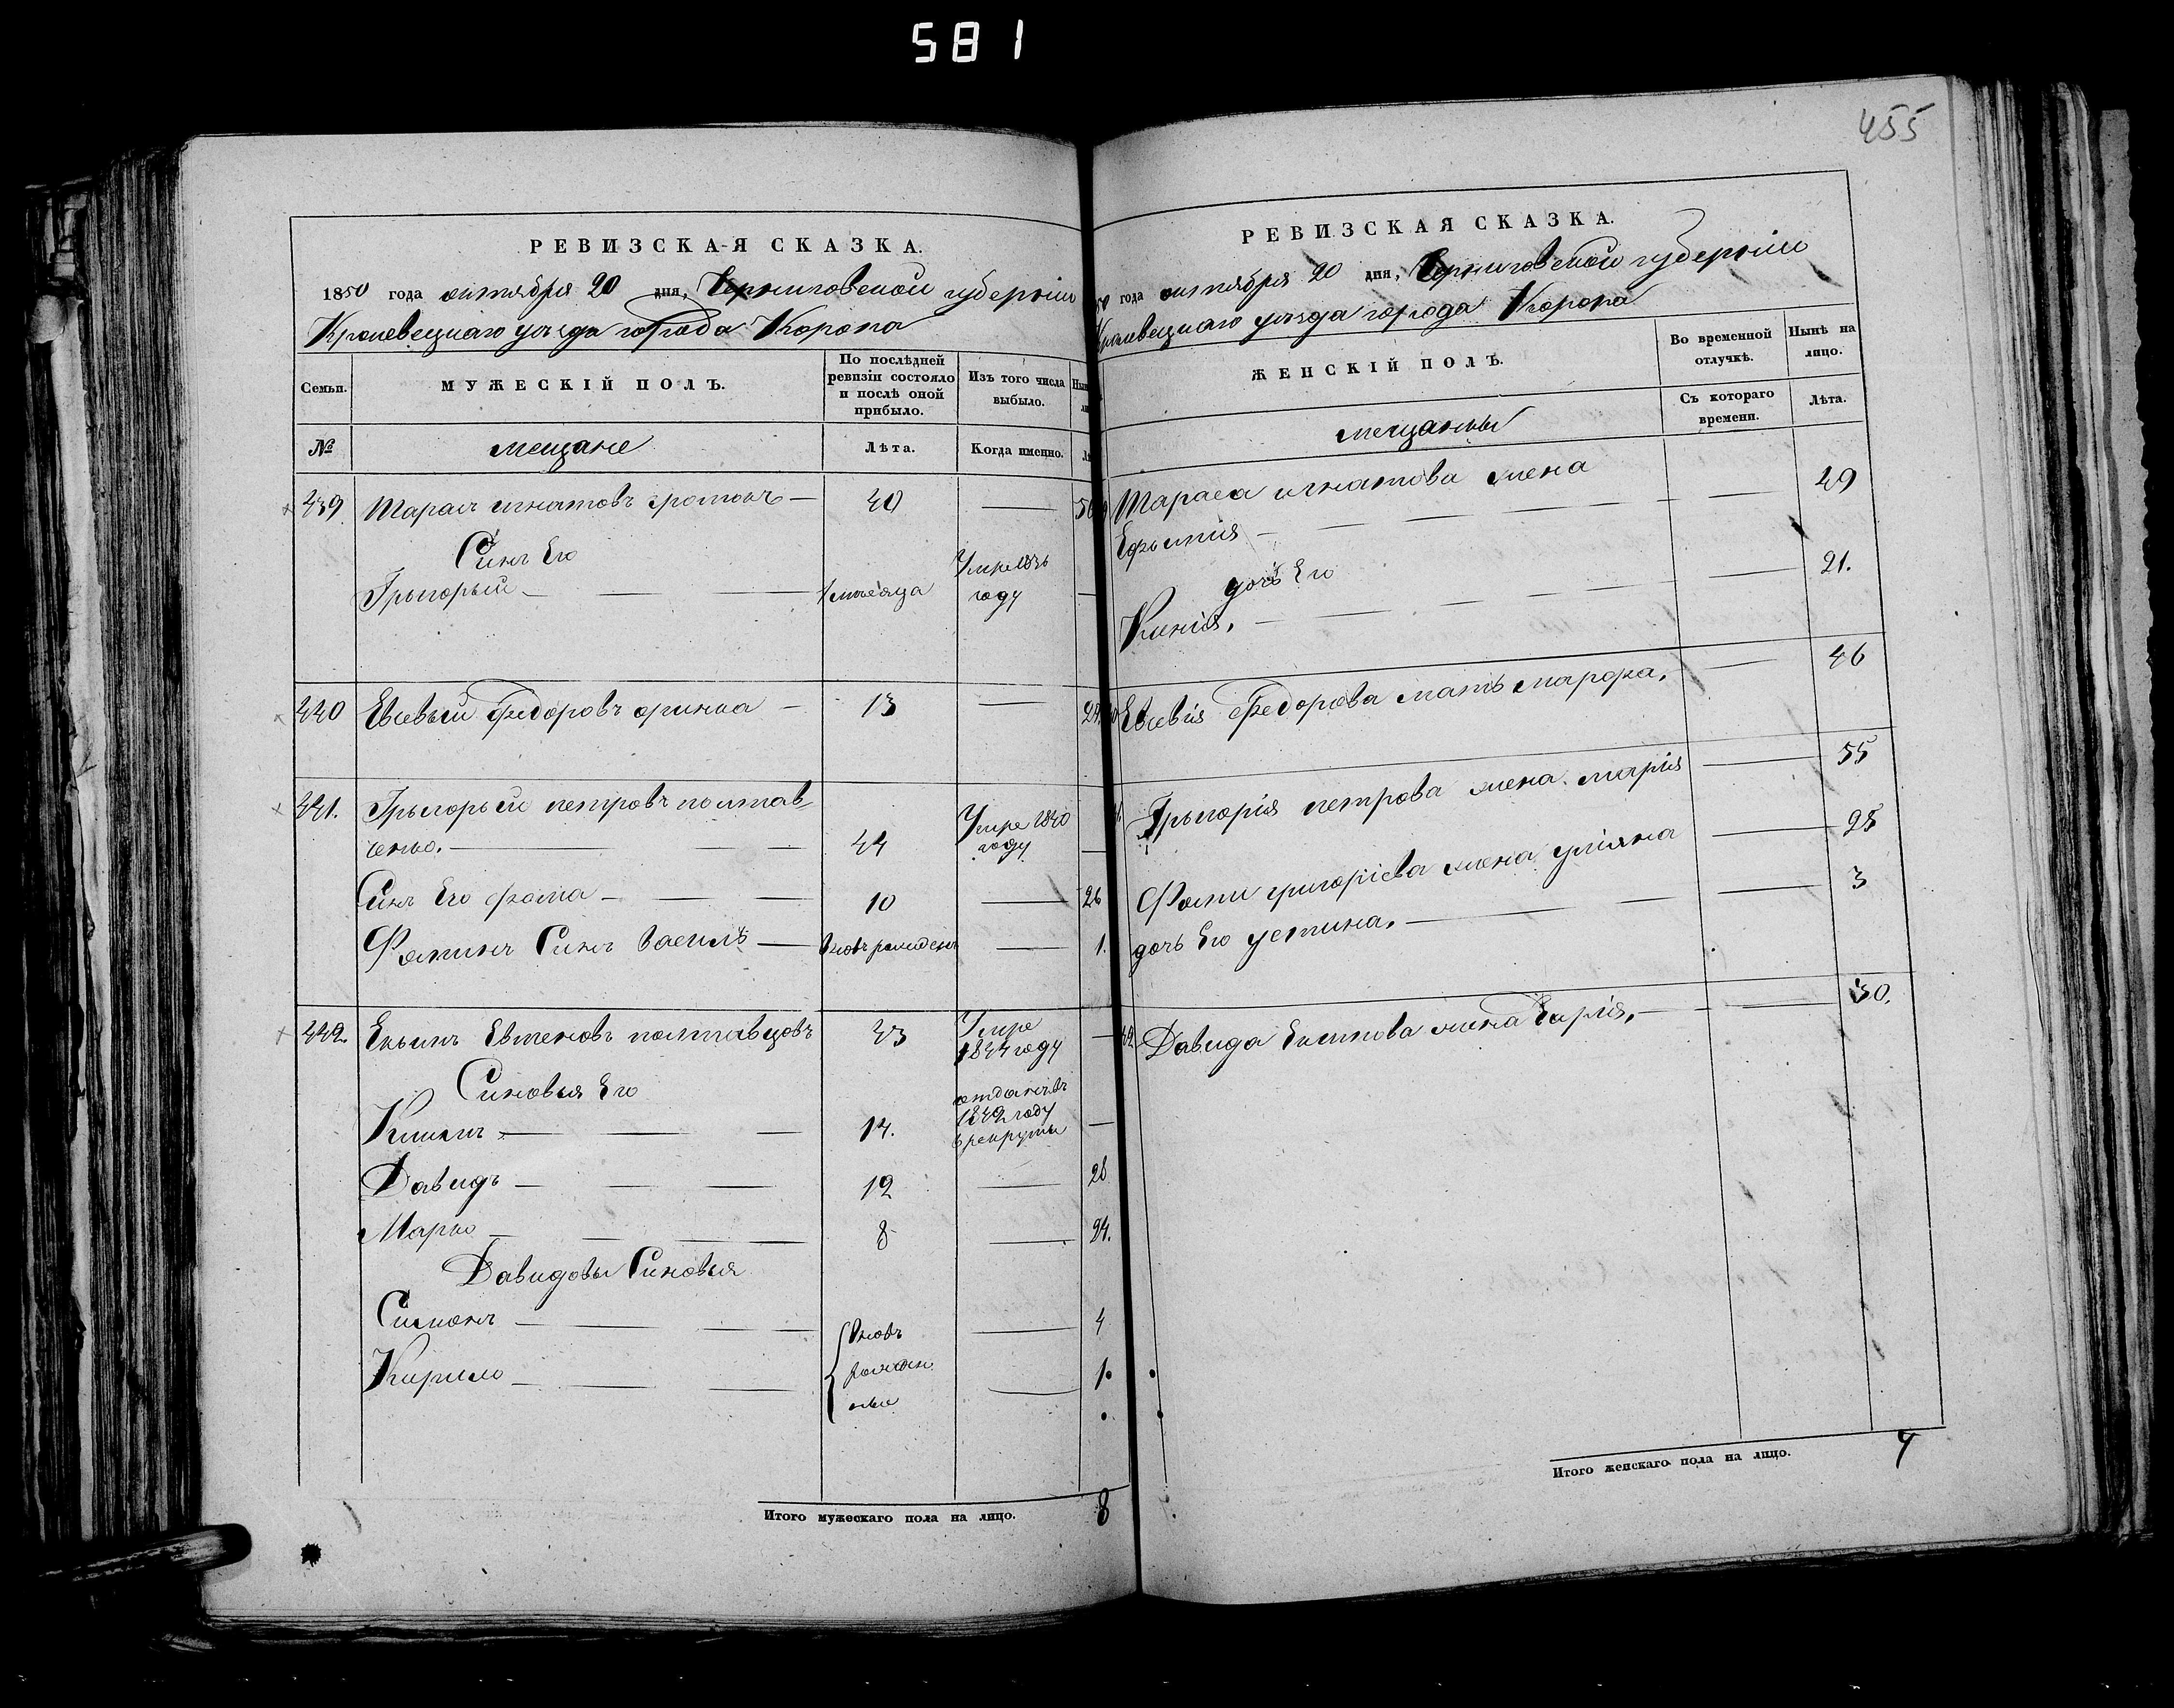 581
455
РЕВИЗСКАЯ СКАЗКА.
1850 года октября 20 дня, Черниговской губерніи
Кролевецкаго уезда города Коропа
Семьи.
МУЖЕСКІЙ ПОЛЪ.
По послѣдней ревизіи состояло и послѣ оной прибыло.
Изъ того числа выбыло.
№
мещане
Лѣта.
Когда именно.
439 Тарасъ игнатовъ 40 — 56
Синъ Его
Грыгорый — 1/2 месяца Умре 18 году —
440 Евсевый Федоровъ 13 — 29
441. Грыгорый петровъ полтав
ченко. — 44 Умре 1840 году —
Синъ Его фома — 10 — 26
Фоминъ Синъ Василь — вновь рожденъ — 1.
442. Екымъ Евтеховъ полтавцовъ 43 Умре 1844 году —
Синовья Его
Климъ — 14. отданъ въ 1842 году в рекруты —
Давидъ — 12 — 28
Марко — 8 — 24.
Давидовы Синовья
Симонъ — вновь — 4
Кирило — рожден ные — 1.
Итого мужескаго пола на лицо. 8
РЕВИЗСКАЯ СКАЗКА.
50 года октября 20 дня, Черниговской губерніи
Кролевецкаго уезда города Коропа
ЖЕНСКІЙ ПОЛЪ.
Во временной отлучкѣ.
Нынѣ на лицо.
Съ котораго времени.
Лѣта.
мещанки
Тараса игнатова жена
Ефымія — — 49
дочь Его
Ксенія, — — 21.
Евсевія Федорова мать марфа, — 46
Грыгорія петрова жена марія — 55
Фоми григоріева жена уліяна — 25
дочь Его устина, — — 3
42 Давида Екимова жена — 30.
Итого женскаго пола на лицо. 7